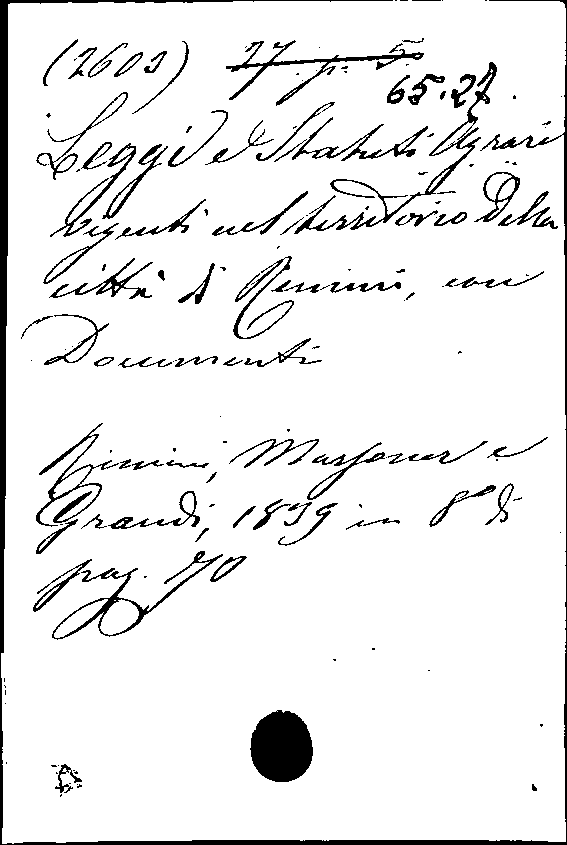 (2603) 27. p. 5
65.27.
Leggi e Statuti Agrari
vigenti nel territorio Della
città di Rimini, con
Documenti
Rimini, Marsoner e
Grandi, 1839 in 8° di
pag. 70